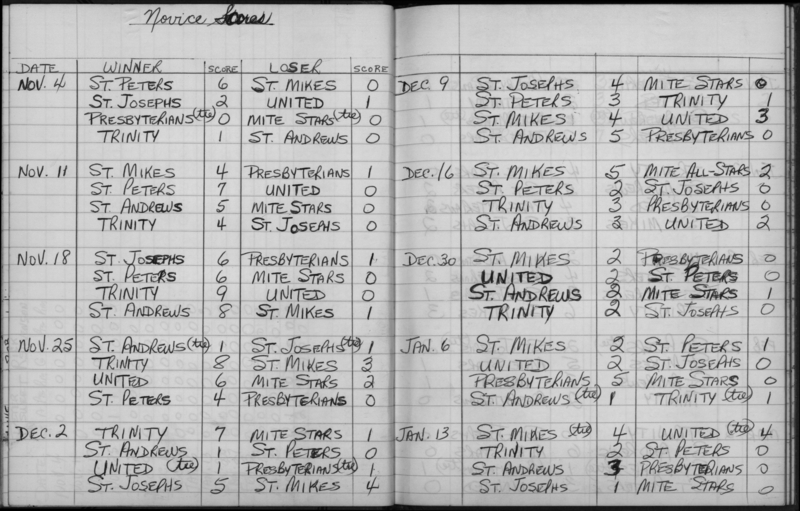 Novice Scores
DATE WINNER SCORE LOSER SCORE
NOV. 4 ST. PETERS 6 ST. MIKES 0
ST. JOSEPHS 2 UNITED 1
PRESBYTERIANS (tie) 0 MITE STARS (tie) 0
TRINITY 1 ST. ANDREWS 0
NOV. 11 ST. MIKES 4 PRESBYTERIANS 1
ST. PETERS 7 UNITED 0
ST. ANDREWS 5 MITE STARS 0
TRINITY 4 ST. JOSEPHS 0
NOV. 18 ST. JOSEPHS 6 PRESBYTERIANS 1
ST. PETERS 6 MITE STARS 0
TRINITY 9 UNITED 0
ST. ANDREWS 8 ST. MIKES 1
NOV. 25 ST. ANDREWS (tie) 1 ST. JOSEPHS (tie) 1
TRINITY 8 ST. MIKES 3
UNITED 6 MITE STARS 2
ST. PETERS 4 PRESBYTERIANS 0
DEC. 2 TRINITY 7 MITE STARS 1
ST. ANDREWS 1 ST. PETERS 0
UNITED (tie) 1 PRESBYTERIANS (tie) 1
ST. JOSEPHS 5 ST. MIKES 4
DEC. 9 ST. JOSEPHS 4 MITE STARS 0
ST. PETERS 3 TRINITY 1
ST. MIKES 4 UNITED 3
ST. ANDREWS 5 PRESBYTERIANS 0
DEC. 16 ST. MIKES 5 MITE ALL-STARS 2
ST. PETERS 2 ST. JOSEPHS 0
TRINITY 3 PRESBYTERIANS 0
ST. ANDREWS 3 UNITED 2
DEC. 30 ST. MIKES 2 PRESBYTERIANS 0
UNITED 2 ST. PETERS 0
ST. ANDREWS 2 MITE STARS 1
TRINITY 2 ST. JOSEPHS 0
JAN. 6 ST. MIKES 2 ST. PETERS 1
UNITED 2 ST. JOSEPHS 0
PRESBYTERIANS 5 MITE STARS 0
ST. ANDREWS (tie) 1 TRINITY (tie) 1
JAN. 13 ST. MIKES (tie) 4 UNITED (tie) 4
TRINITY 2 ST. PETERS 0
ST. ANDREWS 3 PRESBYTERIANS 0
ST. JOSEPHS 1 MITE STARS 0